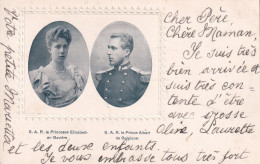 Cher Père,
Chère Maman,
Je suis très
bien arrivée et
suis très con-
tente d'être
avec grosse
Line, Laurette
et les deux enfants.
Je vous embrasse tous très fort
Votre petite Marietta
S. A. R. la Princesse Elisabeth
de Bavière
S. A. R. le Prince Albert
de Belgique